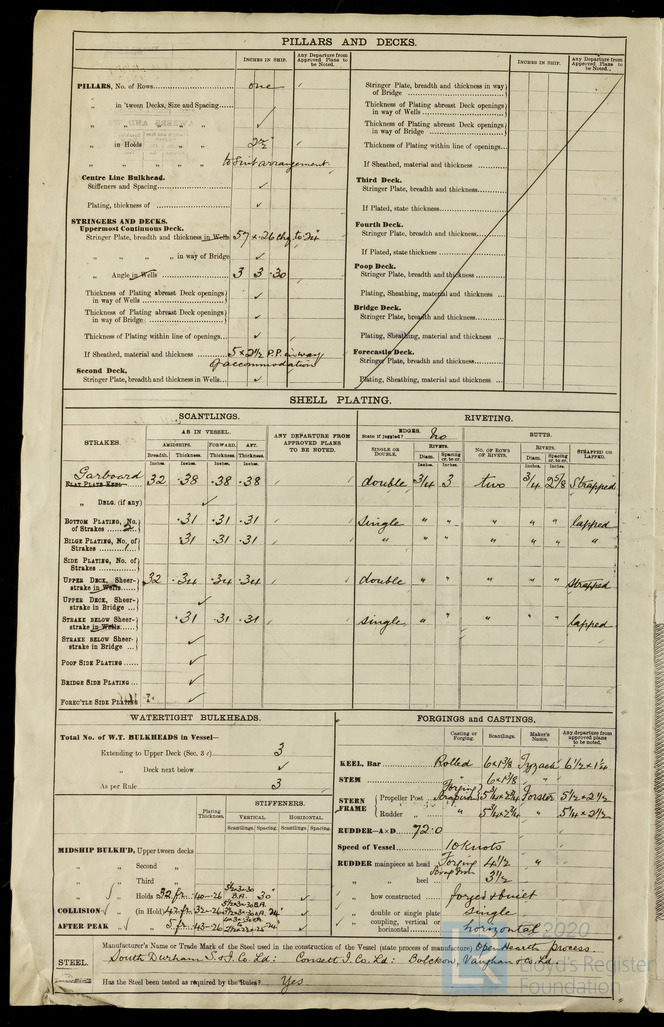 PILLARS AND DECKS.
INCHES IN SHIP.
Any Departure from Approved Plans to be Noted.
PILLARS, No. of Rows one
„ in 'tween Decks, Size and Spacing ✓
„ „ „ „ ✓
„ in Holds „ „ 2½"
„ „ „ „ to suit arrangement
Centre Line Bulkhead.
Stiffeners and Spacing ✓
Plating, thickness of ✓
STRINGERS AND DECKS.
Uppermost Continuous Deck.
Stringer Plate, breadth and thickness in Wells 57 × .26
„ „ „ „ in way of Bridge ✓
„ Angle in Wells 3 3 .30
Thickness of Plating abreast Deck openings in way of Wells ✓
Thickness of Plating abreast Deck openings in way of Bridge ✓
Thickness of Plating within line of openings ✓
If Sheathed, material and thickness 5 × 2½ P.P. in way of accommodation
Second Deck.
Stringer Plate, breadth and thickness in Wells ✓
INCHES IN SHIP.
Any Departure from Approved Plans to be Noted.
Stringer Plate, breadth and thickness in way of Bridge
Thickness of Plating abreast Deck openings in way of Wells
Thickness of Plating abreast Deck openings in way of Bridge
Thickness of Plating within line of openings
If Sheathed, material and thickness
Third Deck.
Stringer Plate, breadth and thickness
If Plated, state thickness
Fourth Deck.
Stringer Plate, breadth and thickness
If Plated, state thickness
Poop Deck.
Stringer Plate, breadth and thickness
Plating, Sheathing, material and thickness
Bridge Deck.
Stringer Plate, breadth and thickness
Plating, Sheathing, material and thickness
Forecastle Deck.
Stringer Plate, breadth and thickness
Plating, Sheathing, material and thickness
SHELL PLATING.
SCANTLINGS.
RIVETING.
STRAKES.
AS IN VESSEL.
AMIDSHIPS. FORWARD. AFT.
Breadth. Thickness. Thickness. Thickness.
Inches. Inches. Inches. Inches.
ANY DEPARTURE FROM APPROVED PLANS TO BE NOTED.
EDGES.
State if joggled? No
SINGLE OR DOUBLE.
RIVETS.
Diam. Spacing cr. to cr.
Inches. Inches.
BUTTS.
NO. OF ROWS OF RIVETS.
RIVETS.
Diam. Spacing cr. to cr.
Inches. Inches.
STRAPPED OR LAPPED.
Garboard
FLAT PLATE KEEL 32 .38 .38 .38 double 3/4 3 two 3/4 2 5/8 Strapped
„ DBLG. (if any) ✓
BOTTOM PLATING, No. of Strakes .31 .31 .31 single „ „ „ „ „ lapped
BILGE PLATING, No. of Strakes 1 .31 .31 .31 „ „ „ „ „ „ „
SIDE PLATING, No. of Strakes
UPPER DECK, Sheer-strake in Wells 32 .34 .34 .34 double „ „ „ „ „ strapped
UPPER DECK, Sheer-strake in Bridge ✓
STRAKE BELOW Sheer-strake in Wells .31 .31 .31 single „ „ „ „ „ lapped
STRAKE BELOW Sheer-strake in Bridge ✓
POOP SIDE PLATING ✓
BRIDGE SIDE PLATING ✓
FOREC'TLE SIDE PLATING ✓
WATERTIGHT BULKHEADS.
Total No. of W.T. BULKHEADS in Vessel—
Extending to Upper Deck (Sec. 3 c) 3
„ Deck next below ✓
As per Rule 3
Plating Thickness.
STIFFENERS.
VERTICAL HORIZONTAL
Scantlings. Spacing. Scantlings. Spacing.
MIDSHIP BULKH'D, Upper tween decks
„ „ Second „
„ „ Third „
„ „ Holds 32 fr. .40-.26 30" ✓
COLLISION „ (in Hold) .32-.26 24" ✓
AFTER PEAK „ 5 fr. .43-.26 24" ✓
FORGINGS and CASTINGS.
Casting or Forging. Scantlings. Maker's Name. Any departure from approved plans to be noted.
KEEL, Bar Rolled 6×1⅜ Tyzack 6½×1¼
STEM „ 6×1⅜ „
STERN FRAME
Propeller Post Forging 5¾×2¾ Forster 5½×2½
Rudder „ „ 5¼×2¾ „ 5¼×2½
RUDDER—A×D 72.0
Speed of Vessel 10 Knots
RUDDER mainpiece at head Forging 4½ „
„ „ heel 3½
„ how constructed forged & built
„ double or single plate single
„ coupling, vertical or horizontal horizontal
STEEL.
Manufacturer's Name or Trade Mark of the Steel used in the construction of the Vessel (state process of manufacture) Open Hearth Process.
South Durham S. & I. Co Ld: Consett I. Co. Ld: Bolckow, Vaughan & Co. Ld.
Has the Steel been tested as required by the Rules? Yes
© 2020
Lloyd's Register
Foundation